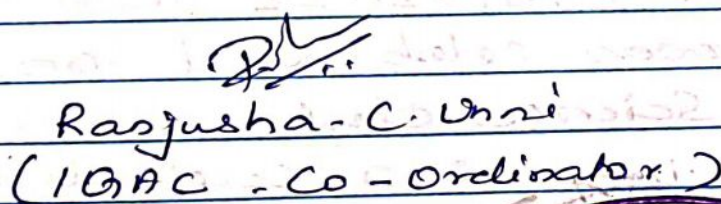 Ranjusha - C. Unni
(IQAC - Co-Ordinator)